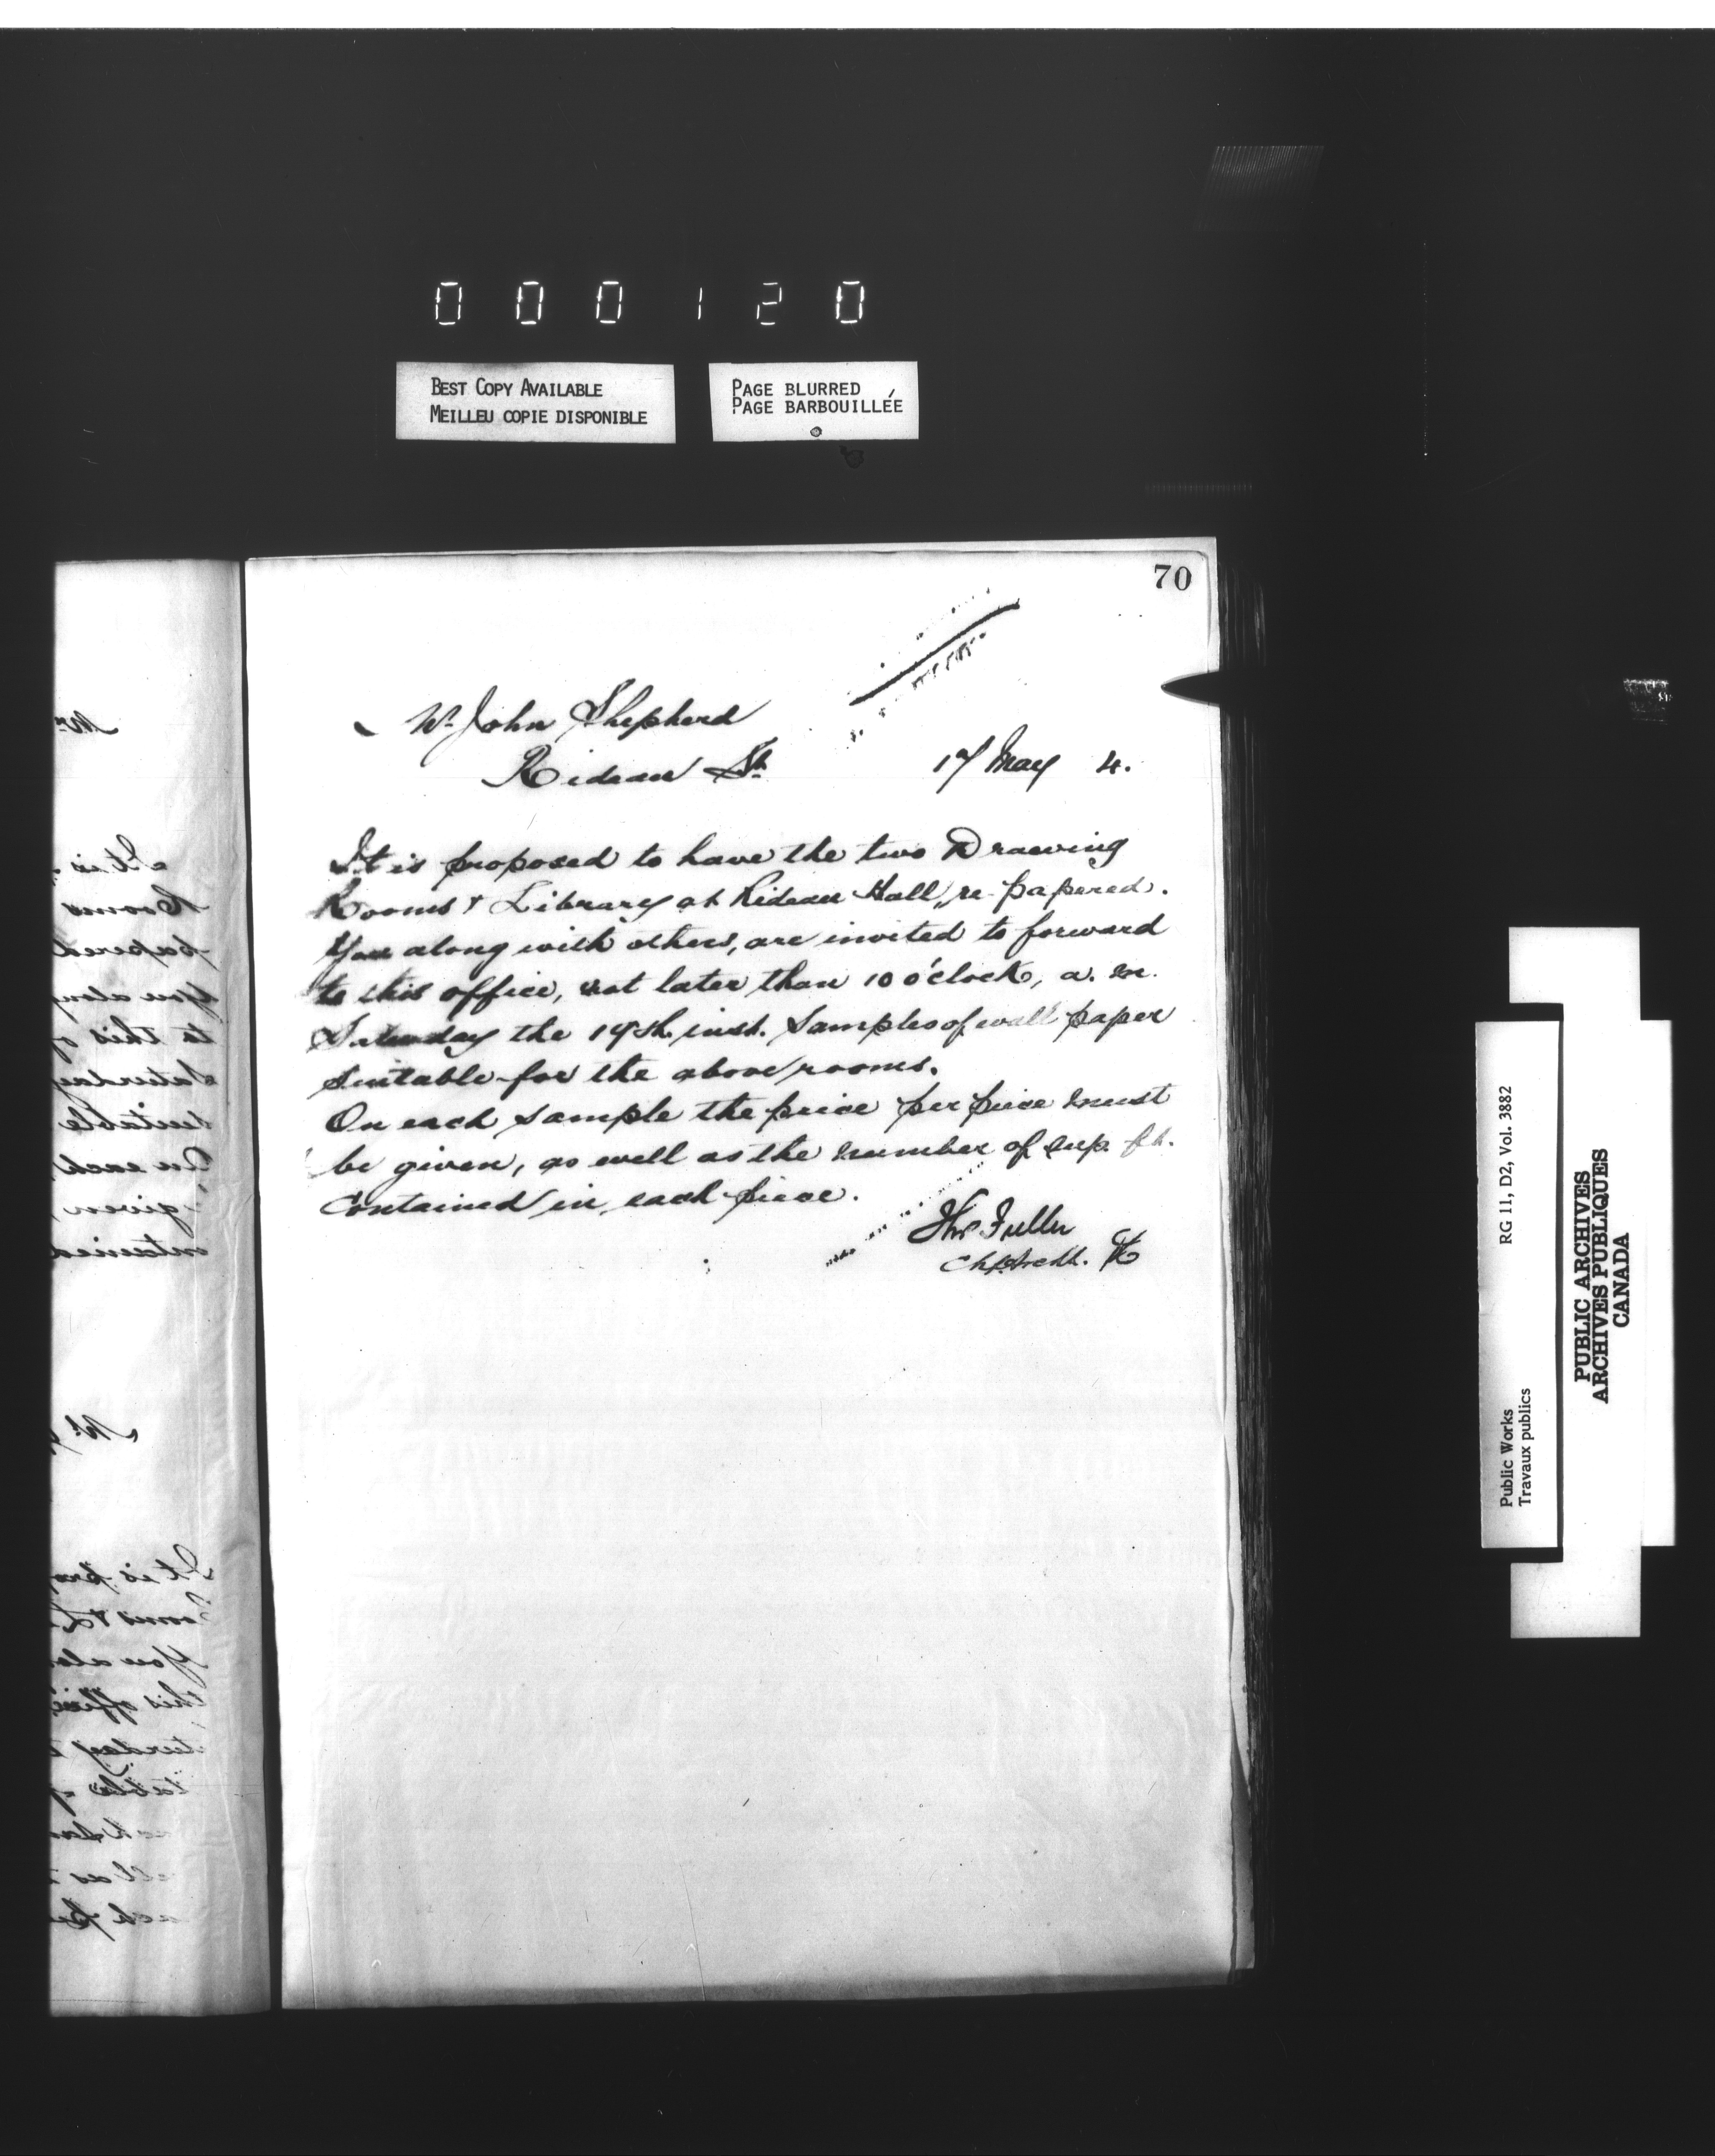 000120
BEST COPY AVAILABLE
MEILLEU COPIE DISPONIBLE
PAGE BLURRED
PAGE BARBOUILLÉE
70
Mr John Shepherd
Rideau St.
17 May 4.
It is proposed to have the two Drawing
Rooms & Library at Rideau Hall, re-papered.
You along with others, are invited to forward
to this office, not later than 10 o'clock, a.m.
Saturday the 17th. inst. Samples of wall paper
suitable for the above rooms.
On each sample the price per piece must
be given, as well as the number of sup. ft.
contained in each piece.
Thos Fuller
Ch. Archt.
Public Works
Travaux publics
RG 11, D2, Vol. 3882
PUBLIC ARCHIVES
ARCHIVES PUBLIQUES
CANADA